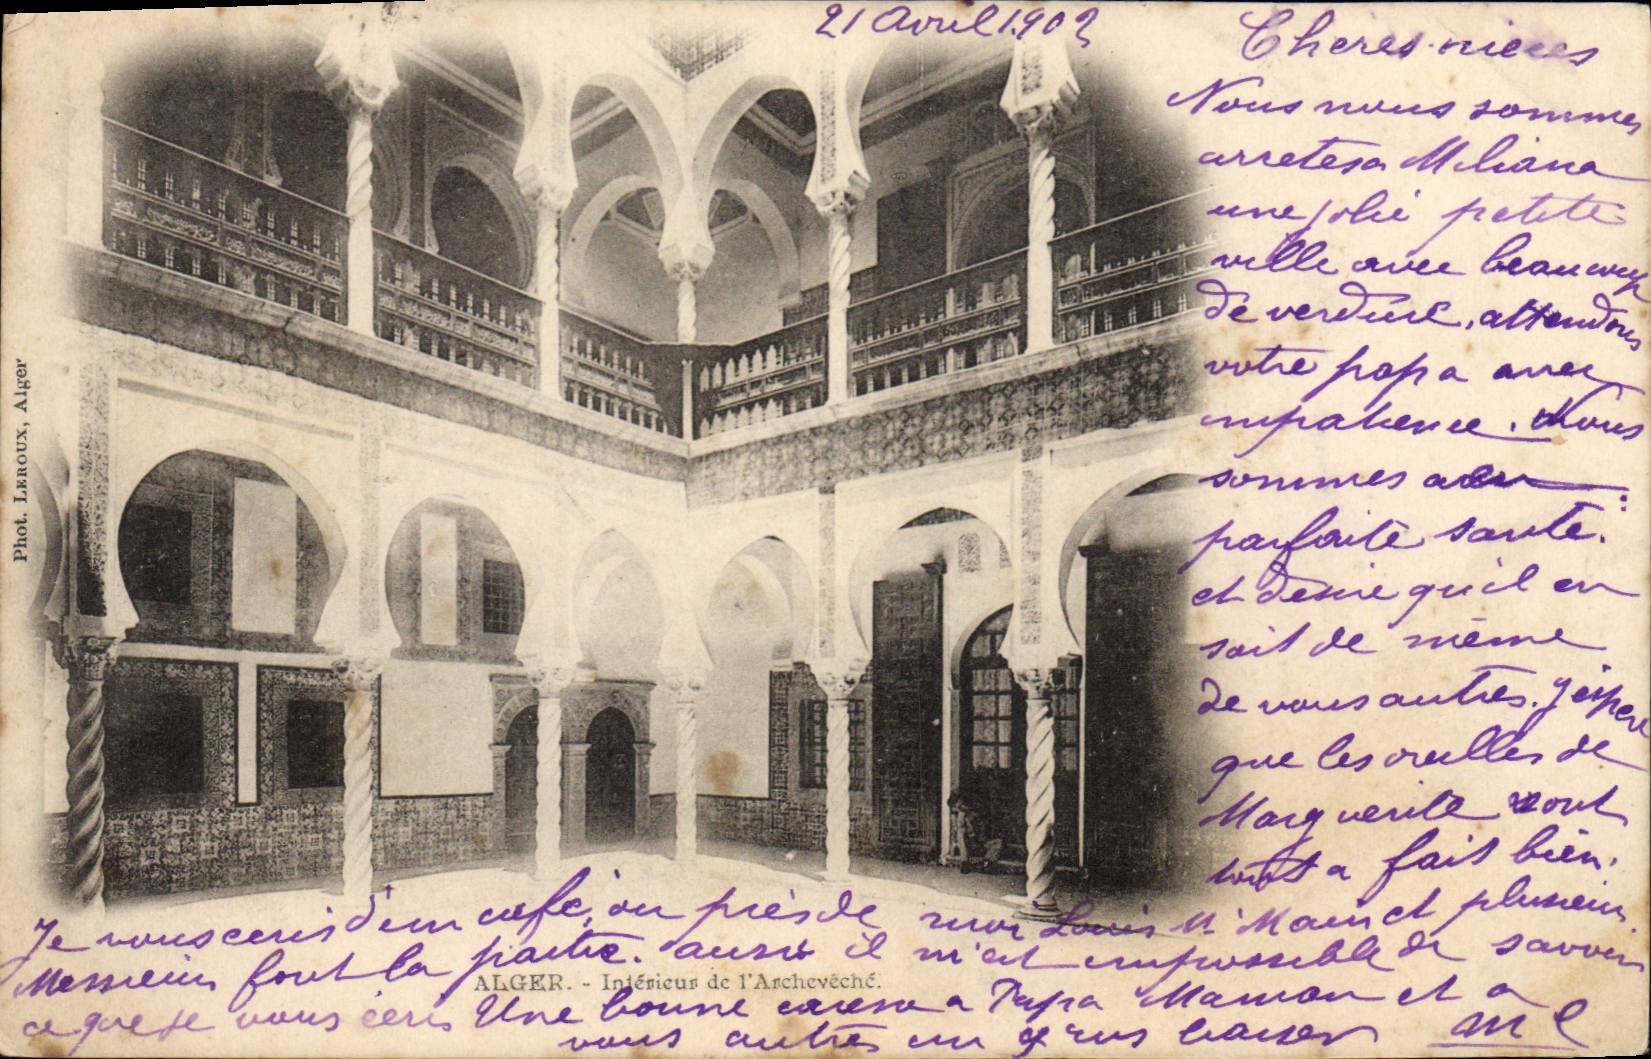 21 Avril 1902
Cheres nieces
Nous nous sommes
arretes a Miliana
une jolie petite
ville avec beaucoup
de verdure, attendons
votre papa avec
impatience. Nous
sommes en
parfaite sante.
et desire qu'il en
soit de même
de vous autres. J'espere
que les oreilles de
Marguerite vont
tout a fait bien.
Je vous ecris d'un cafe, ou près de moi Louis Mr Main et plusieurs
Messieurs font la partie. aussi il m'est impossible de savoir
ce que je vous ecris Une bonne caresse a Papa Maman et a
vous autres un gros baiser
Phot. LEROUX, Alger
ALGER. - Intérieur de l'Archevêché.